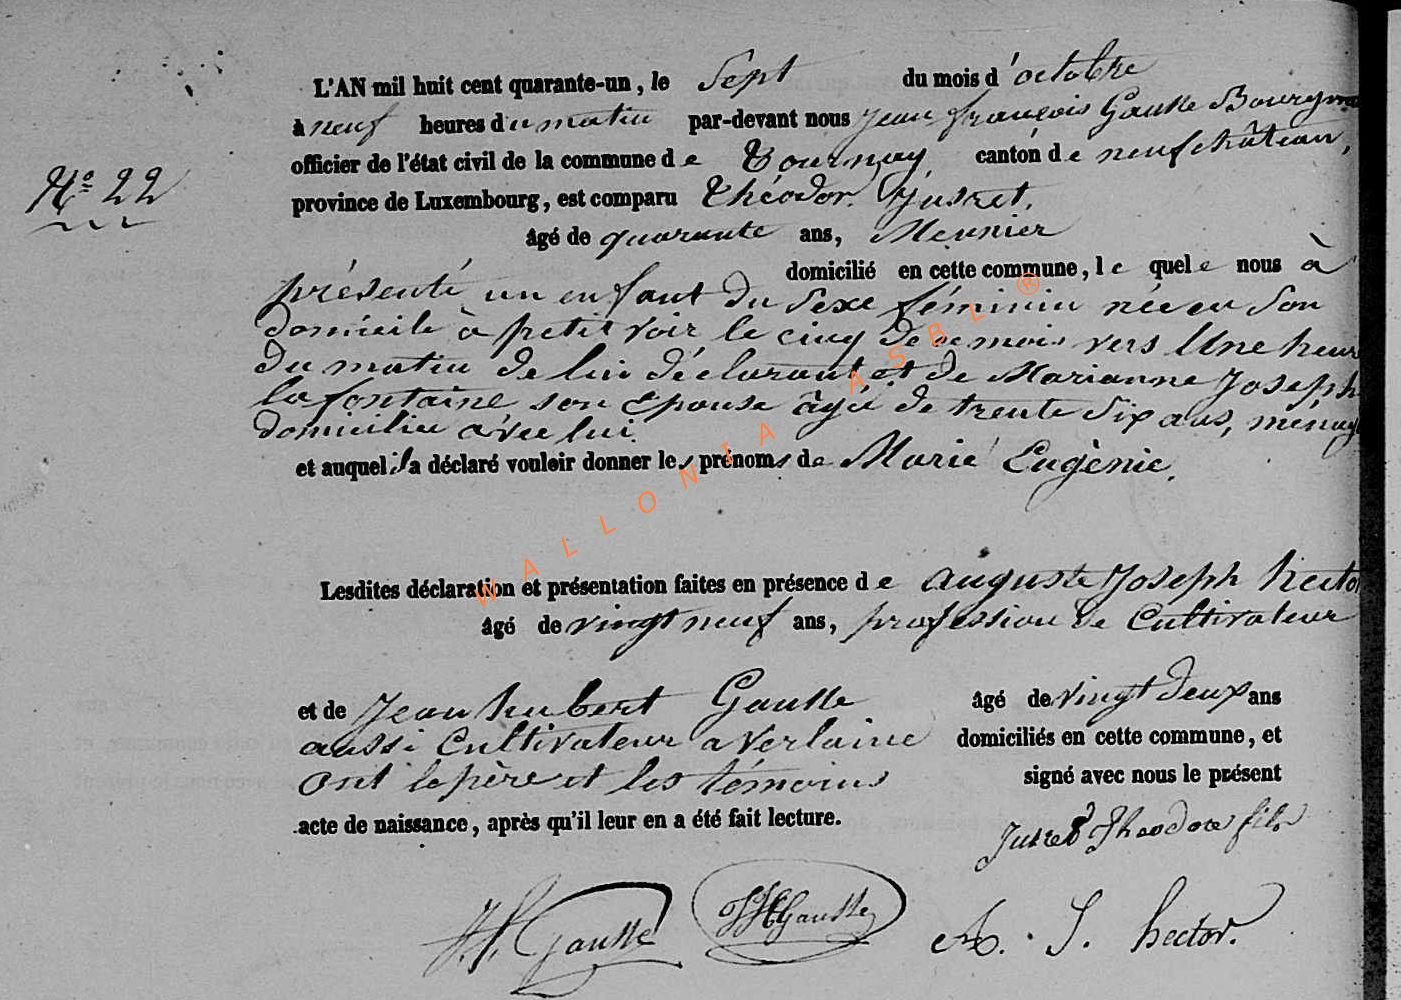 L'AN mil huit cent quarante-un, le Sept du mois d'octobre
à neuf heures du matin par-devant nous Jean françois Gausse Bourgm
officier de l'état civil de la commune de Tournay canton de neufchâteau,
N° 22
province de Luxembourg, est comparu Théodor. Jusret.
âgé de quarante ans, Meunier
domicilié en cette commune, le quel e nous à
présenté un enfant du Sexe féminin née en Son
domicile à petit voir le cinq de ce mois vers Une heur
du matin de lui déclarant et de Marianne Joseph
lafontaine son Epouse âgée de trente Six ans, ménag
domiciliée avec lui.
et auquel il a déclaré vouloir donner les prénoms de Marie Eugènie.
Lesdites déclaration et présentation faites en présence de auguste Joseph hector
âgé de vingt neuf ans, profession de Cultivateur
et de Jean hubert Gausse âgé de vingt deux ans
aussi Cultivateur a Verlaine domiciliés en cette commune, et
ont le père et les témoins signé avec nous le présent
acte de naissance, après qu'il leur en a été fait lecture.
Jusret Theodore fils
J. f. Gausse JH Gausse A. J. hector.
WALLONIA ASBL ®